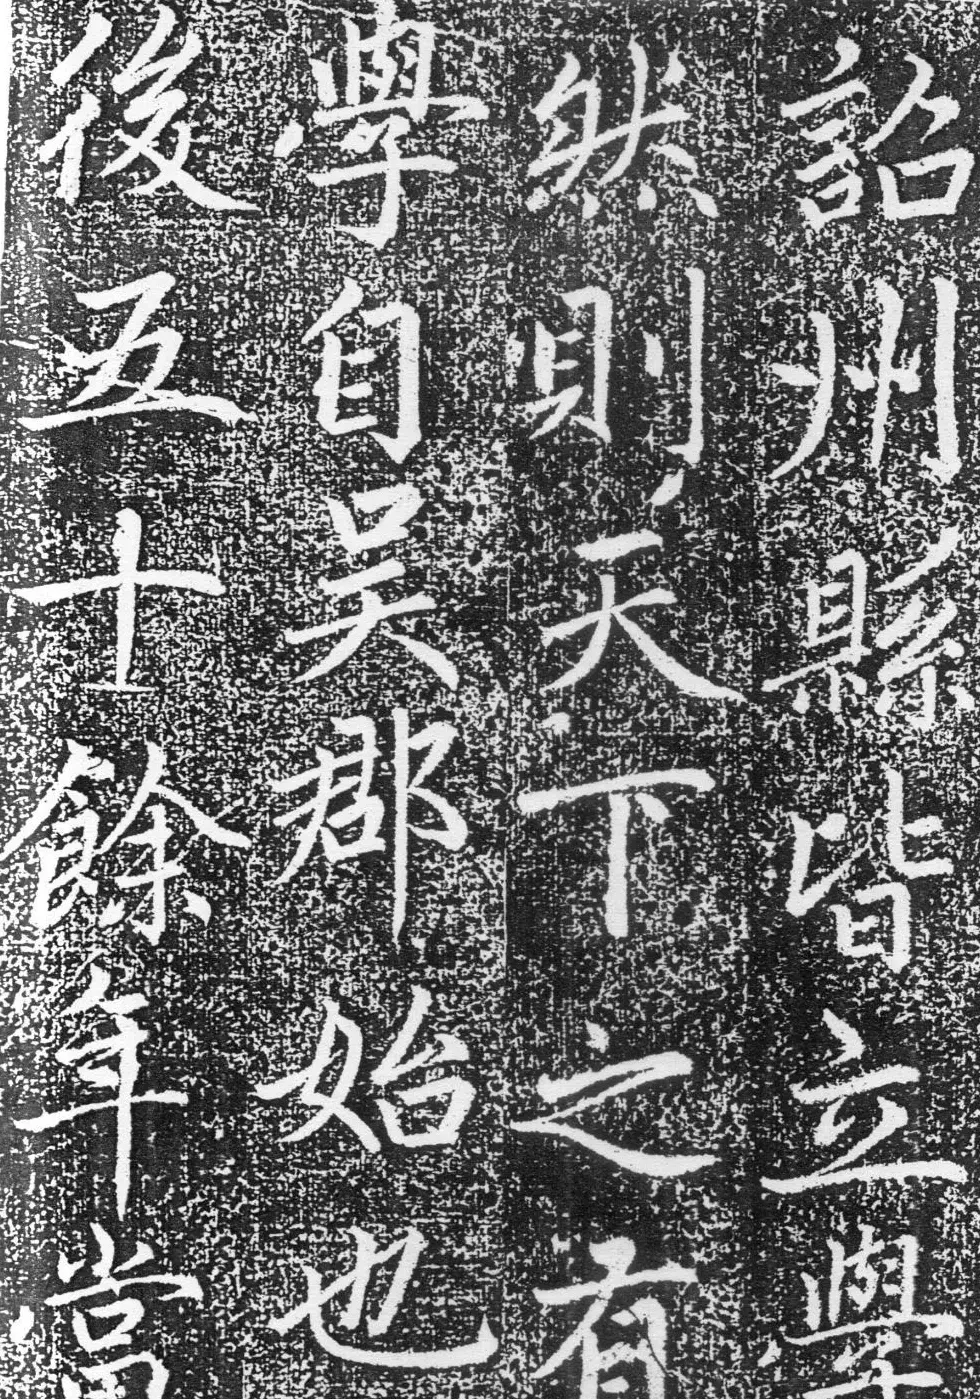 詔州縣皆立學
然則天下之有
學自吳郡始也
後五十餘年當